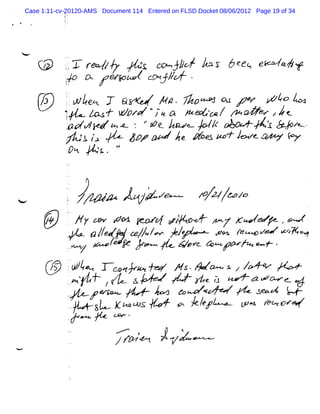 Case 1:11-cv-20120-AMS Document 114 Entered on FLSD Docket 08/06/2012 Page 19 of 34
(12) I reality this conflict has been escalating
to a personal conflict.
(13) When I asked MR. Thomas as per who has
"the Last word" in a medical matter, he
advised me: "We have talk about this before.
This is the BOP and he does not have any say
on this."
10/21/2010
(14) My car was search without my knowledge, and
the alledged cellular telephone was removed without
my knowledge from the Glove compartment.
(15) When I confronted Ms. Adams, later that
night, she stated that she is not aware of
the person that has conducted the search but
that she knows that a telephone was removed
from the car.